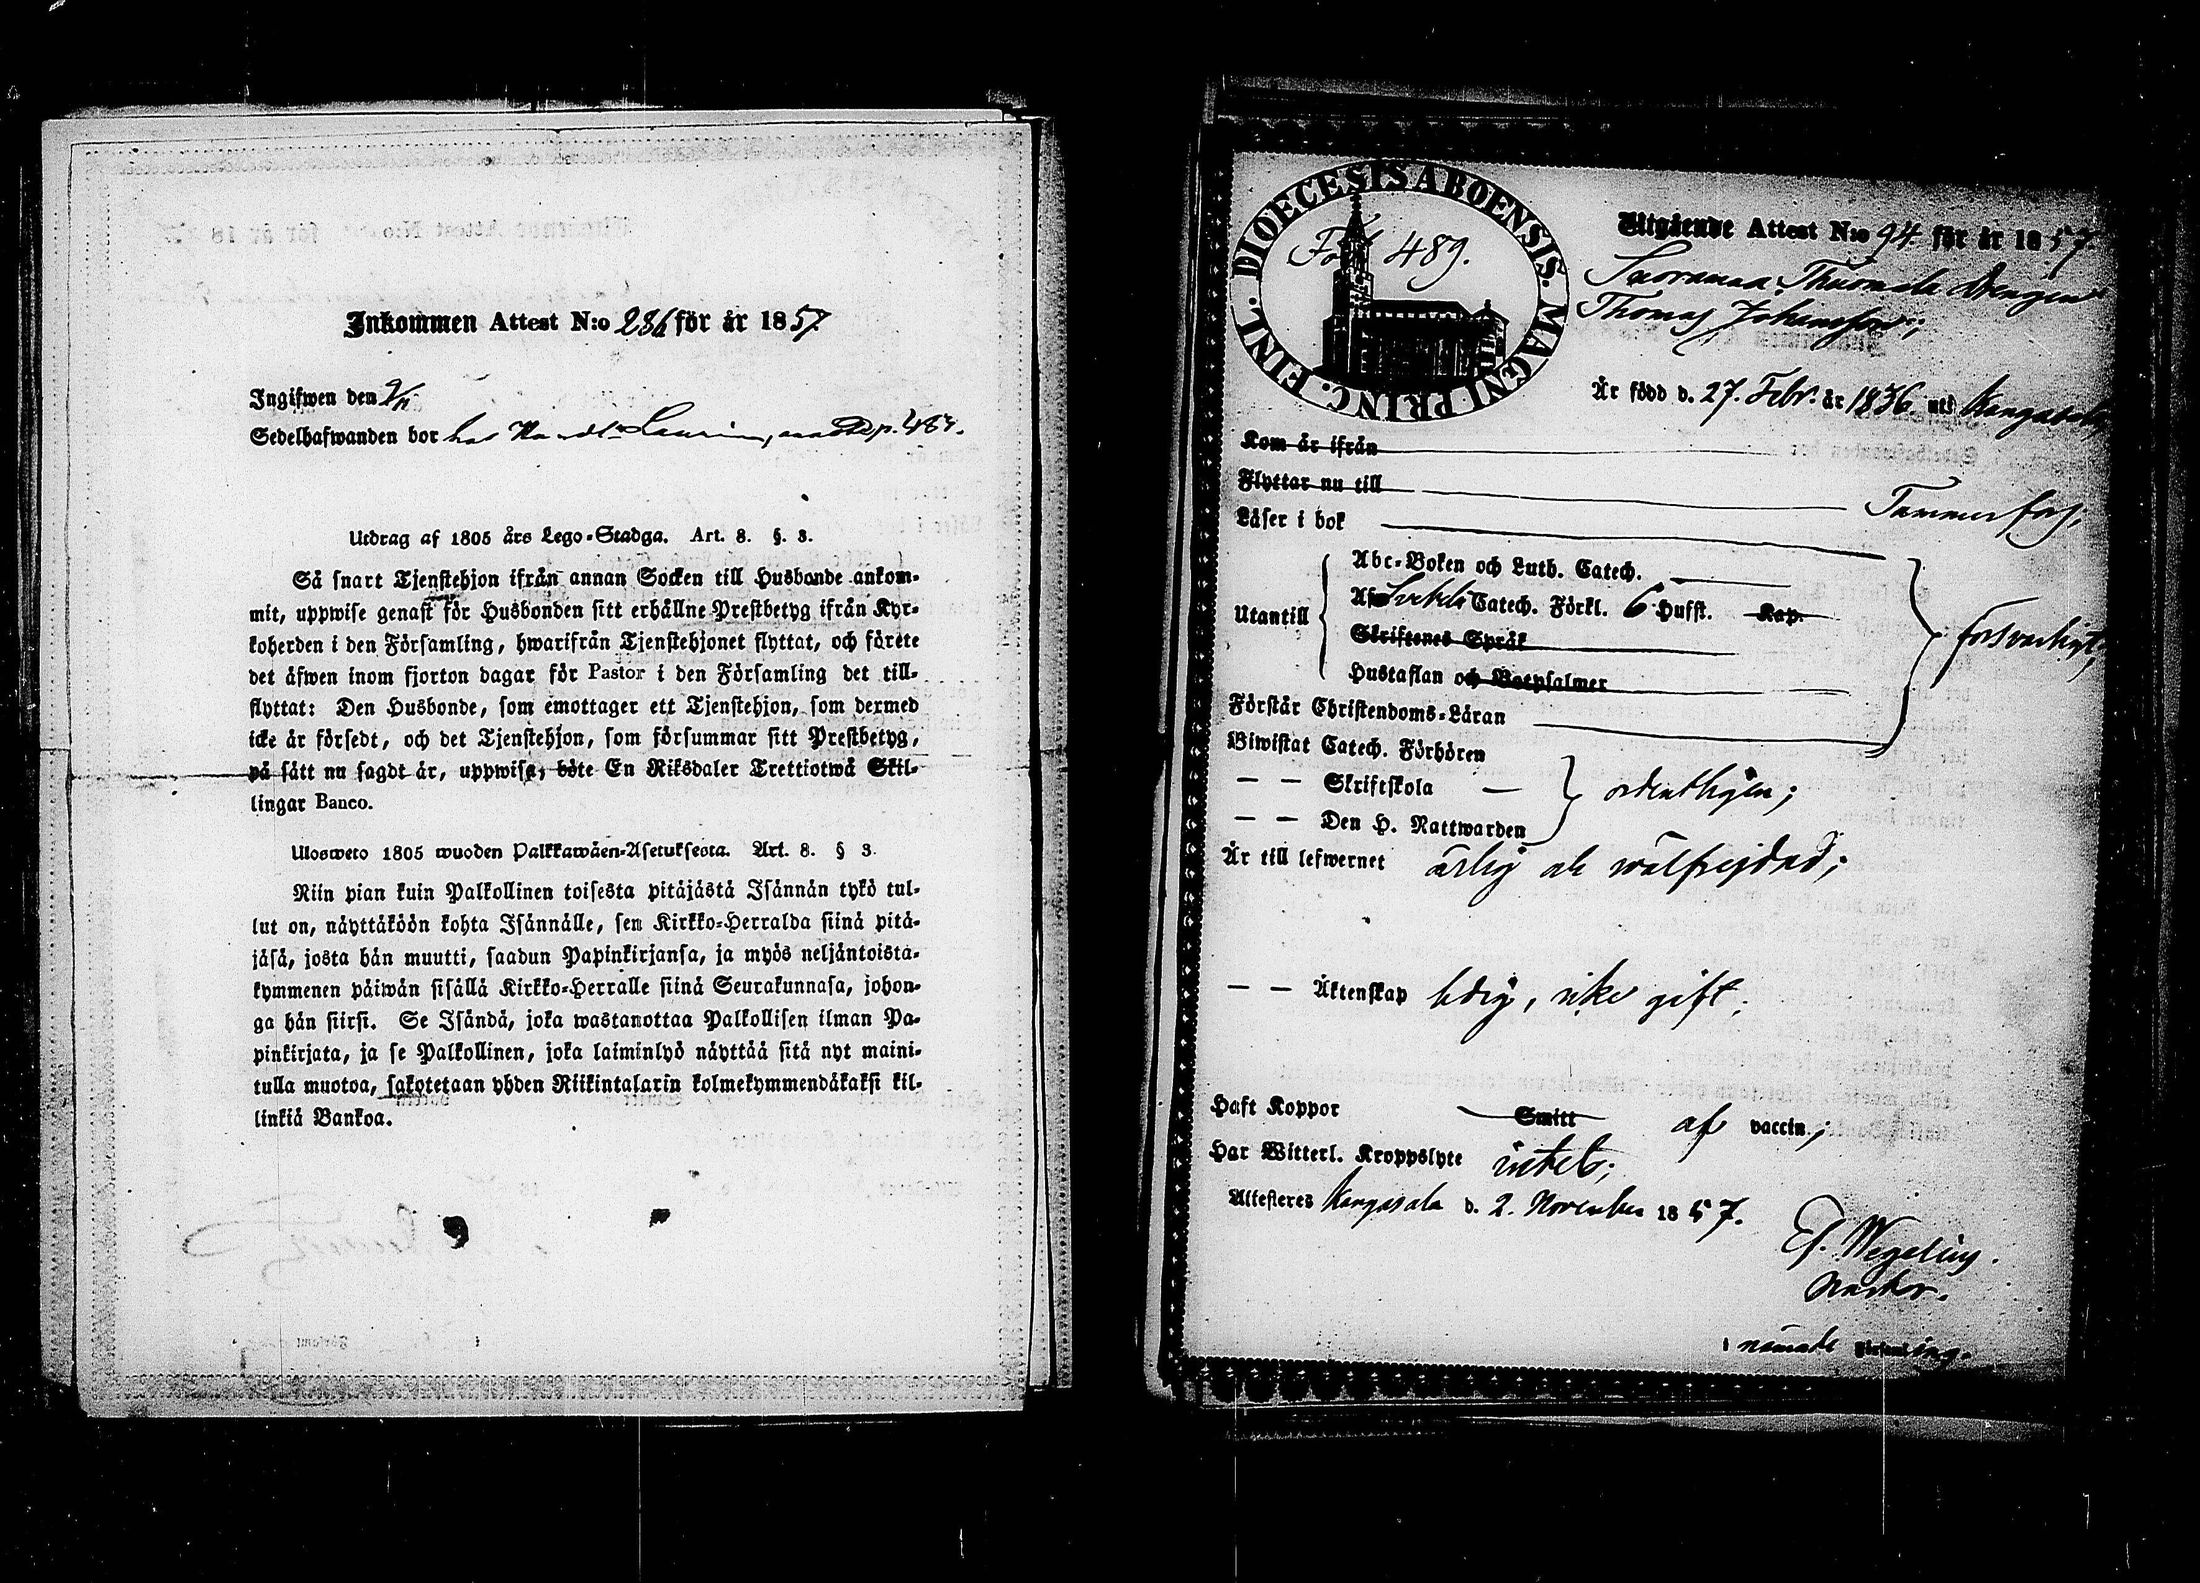 Inkommen Attest N:o 286 för år 1857.
Ingifwen den 9/11
Sedelhafwanden bor hos Laurin, p. 484.
Utdrag af 1805 års Lego-Stadga. Art. 8. §. 3.
Så snart Tjenstehjon ifrån annan Socken till Husbonde ankom-
mit, uppwise genast för Husbonden sitt erhållne Prestbetyg ifrån Kyr-
koherden i den Församling, hwarifrån Tjenstehjonet flyttat, och förete
det äfwen inom fjorton dagar för Pastor i den Församling det till-
flyttat: Den Husbonde, som emottager ett Tjenstehjon, som dermed
icke är försedt, och det Tjenstehjon, som försummar sitt Prestbetyg,
på sätt nu sagdt är, uppwisa, böte En Riksdaler Trettiotwå Skil-
lingar Banco.
Ulosweto 1805 wuoden Palkkawäen-Asetuksesta. Art. 8. § 3.
Niin pian kuin Palkollinen toisesta pitäjästä Isännän tykö tul-
lut on, näyttäköön kohta Isännälle, sen Kirkko-Herralda siinä pitä-
jäsä, josta hän muutti, saadun Papinkirjansa, ja myös neljäntoista-
kymmenen päiwän sisällä Kirkko-Herralle siinä Seurakunnasa, johon-
ga hän siirsi. Se Isändä, joka wastanottaa Palkollisen ilman Pa-
pinkirjata, ja se Palkollinen, joka laiminlyö näyttää sitä nyt maini-
tulla muotoa, sakotetaan yhden Riikintalarin kolmekymmendäkaksi kil-
linkiä Bankoa.
DIOECESIS ABOENSIS. MAGNI PRINC. FINL.
Fol. 489.
Utgående Attest N:o 94. för år 1857.
Suorama Thuomala Drengen
Thomas Johansson;
Är född d. 27. Febr. år 1836. uti Kangasala,
Kom är ifrån
Flyttar nu till Tammerfors;
Läser i bok
Utantill
Abc-Boken och Luth. Catech.
Af Svebelii Catech. Förkl. 6 Hufst. Kap.
Skriftenes Språk
Hustaflan och Botpsalmer
försvarligt;
Förstår Christendoms-Läran
Biwistat Catech. Förhören
— — Skriftskola —
— — Den H. Nattwarden
ordentligen;
Är till lefwernet ärlig och wälfrejdad;
— — Äktenskap ledig, icke gift;
Haft Koppor Smitt af vaccin;
Har Witterl. Kroppslyte intet;
Attesteres Kangasala d. 2. November 1857.
Ef. Wegelius.
Pastor.
i nämnde Församling.